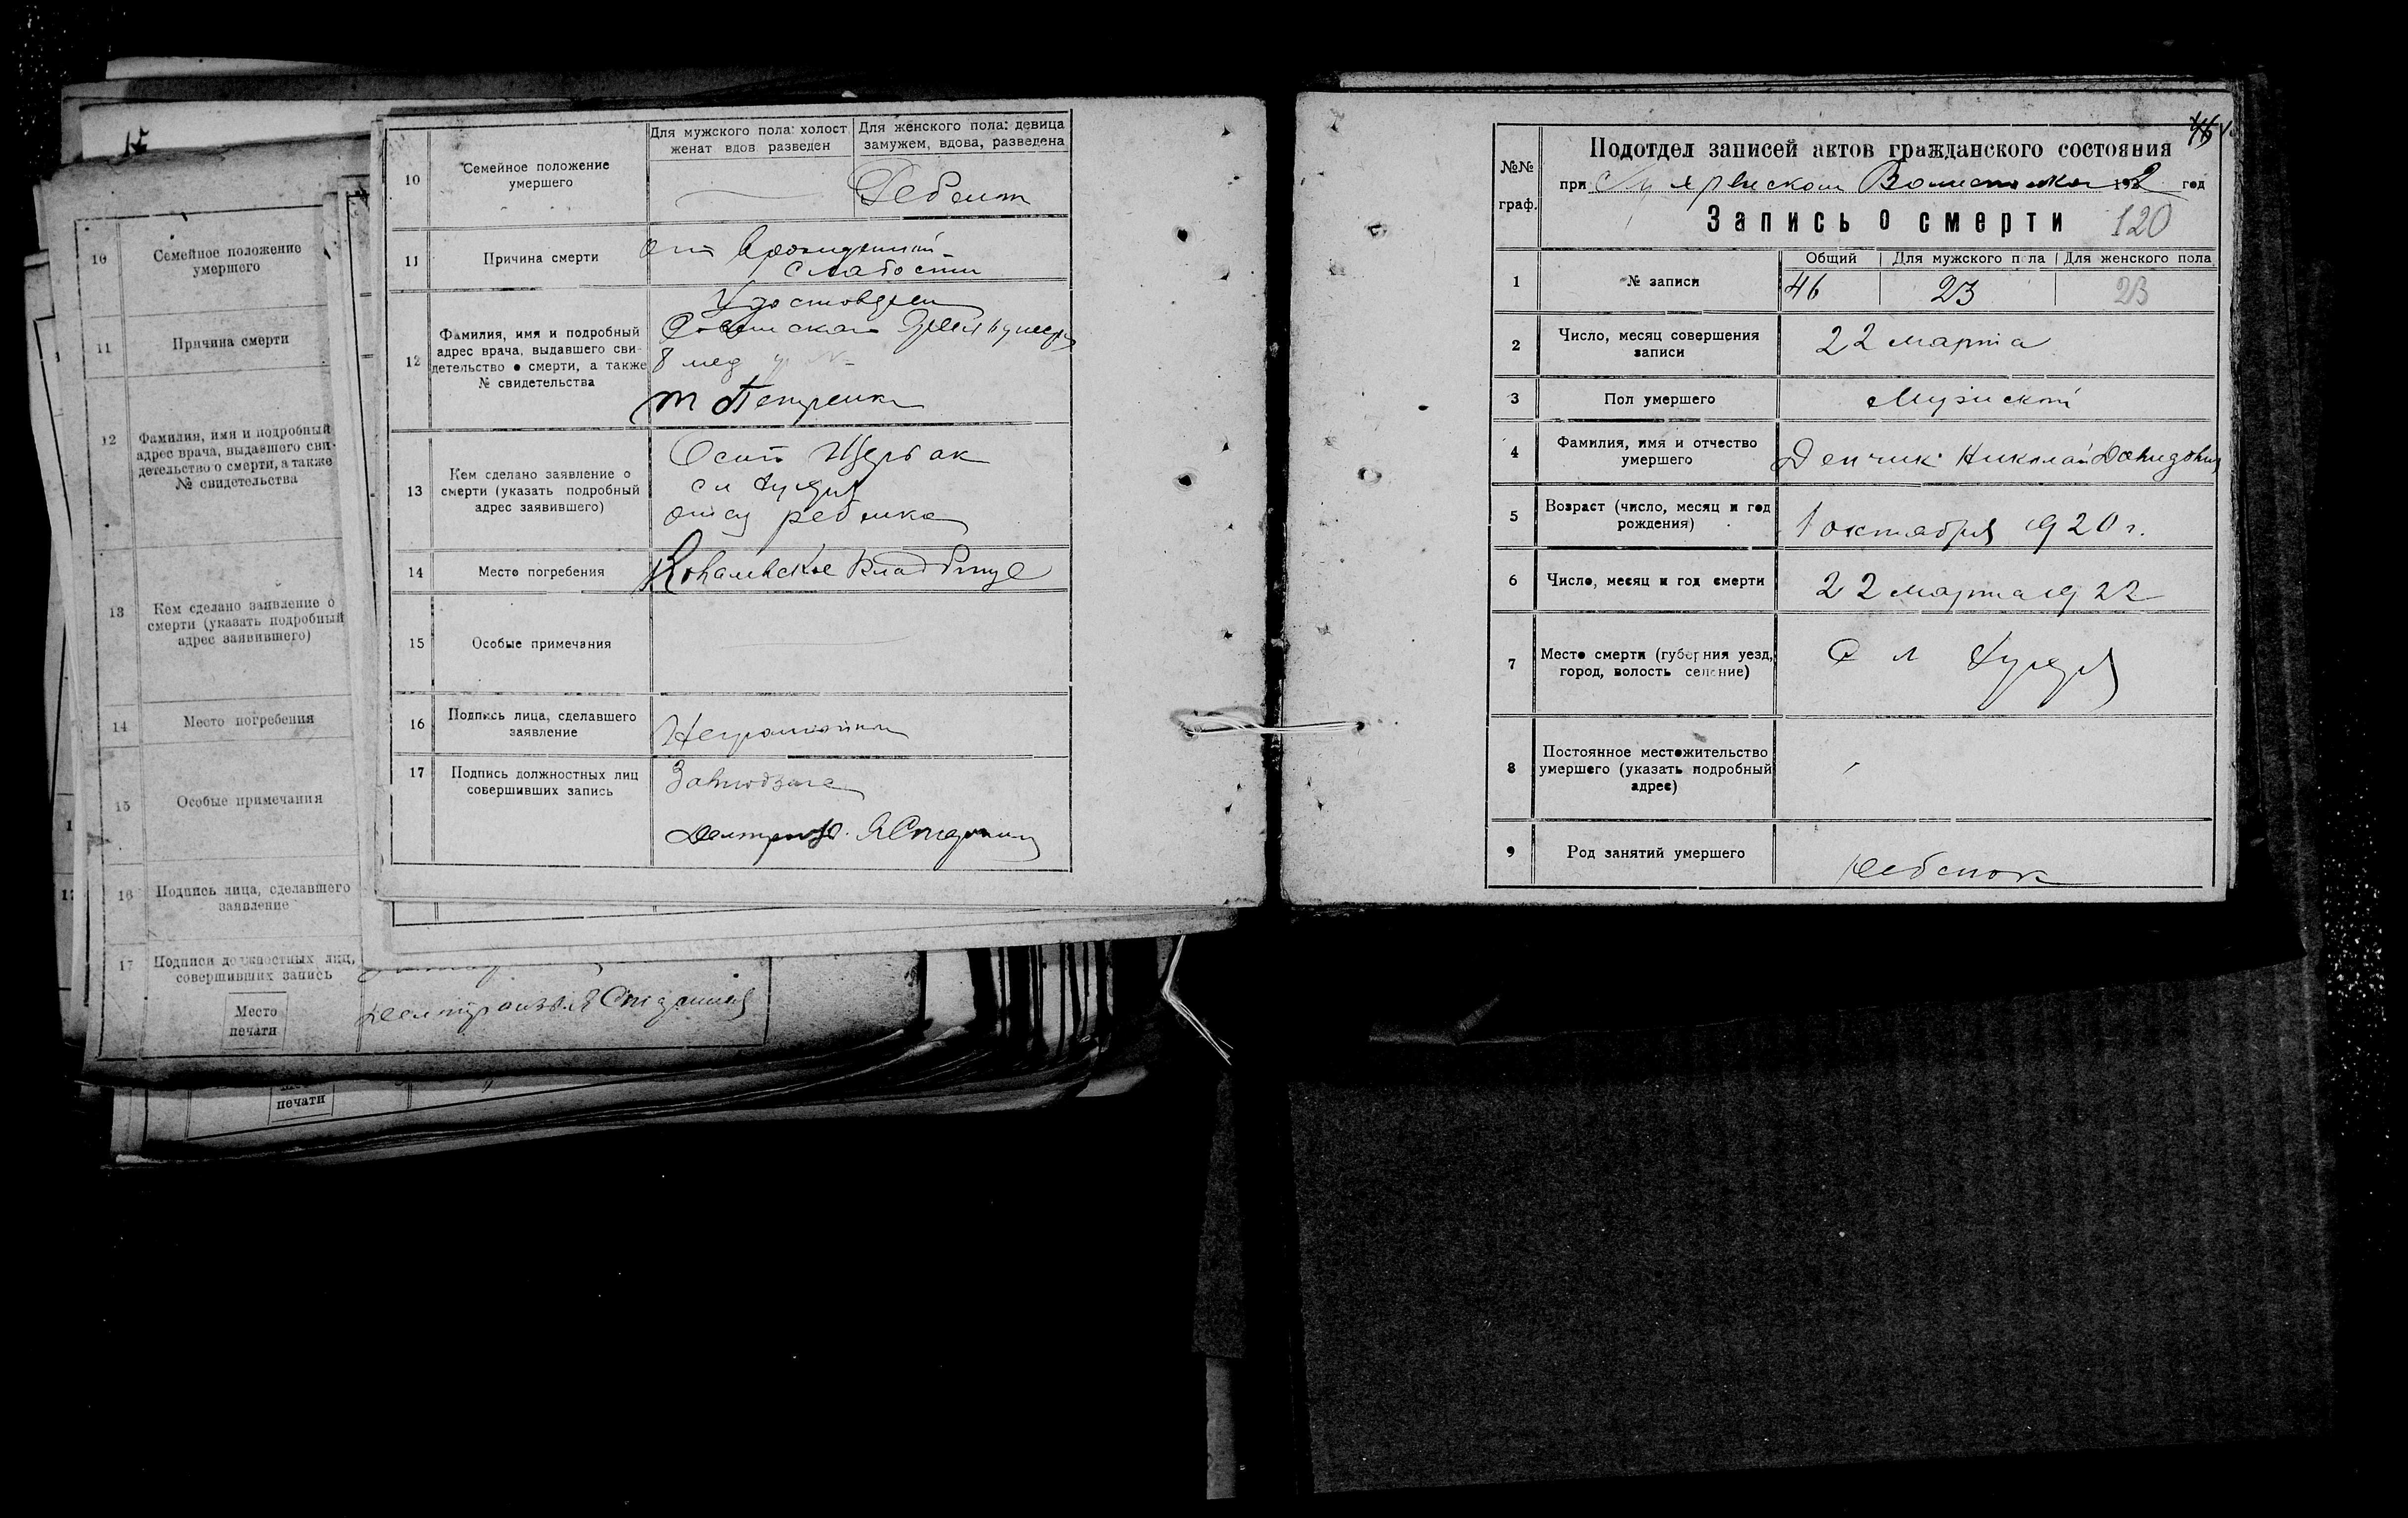 10
Семейное положение
умершего
Для мужского пола: холост
женат вдов разведен
Для женского пола: девица
замужем, вдова, разведена
11
Причина смерти
от врожденной
слабости
12
Фамилия, имя и подробный
адрес врача, выдавшего сви-
детельство о смерти, а также
№ свидетельства
8 мед
13
Кем сделано заявление о
смерти (указать подробный
адрес заявившего)
Осип Щербак
сл
отец ребенка
14
Место погребения
Ковалевское кладбище
15
Особые примечания
16
Подпись лица, сделавшего
заявление
Неграмотный
17
Подпись должностных лиц
совершивших запись
10
Семейное положение
умершего
11
Причина смерти
12
Фамилия, имя и подробный
адрес врача, выдавшего сви-
детельство о смерти, а также
№ свидетельства
13
Кем сделано заявление о
смерти (указать подробный
адрес заявившего)
14
Место погребения
15
Особые примечания
16
Подпись лица, сделавшего
заявление
17
Подписи должностных лиц,
совершивших запись
Место
печати
печати
46
№№
граф.
Подотдел записей актов гражданского состояния
при 192 2 год
Запись о смерти 120
1
№ записи
Общий Для мужского пола Для женского пола
46 23 23
2
Число, месяц совершения
записи
22 марта
3
Пол умершего
Мужской
4
Фамилия, имя и отчество
умершего
Демчик Николай Давидович
5
Возраст (число, месяц и год
рождения)
1 октября 1920 г.
6
Число, месяц и год смерти
22 марта 1922
7
Место смерти (губерния уезд,
город, волость селение)
С л
8
Постоянное местожительство
умершего (указать подробный
адрес)
9
Род занятий умершего
Ребенок